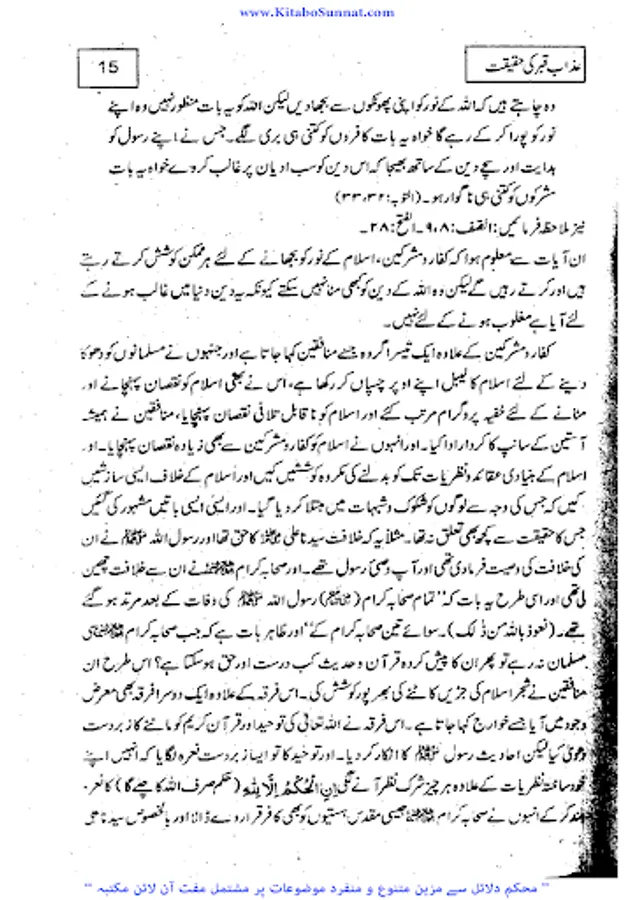 www.KitaboSunnat.com
عذاب قبر کی حقیقت
15
وہ چاہتے ہیں کہ اللہ کے نور کو اپنی پھونکوں سے بجھا دیں لیکن اللہ کو یہ بات منظور نہیں وہ اپنے
نور کو پورا کر کے رہے گا خواہ یہ بات کافروں کو کتنی ہی بری لگے۔ جس نے اپنے رسول کو
ہدایت اور سچے دین کے ساتھ بھیجا کہ اس دین کو سب ادیان پر غالب کر دے خواہ یہ بات
مشرکوں کو کتنی ہی ناگوار ہو۔ (التوبہ: ۳۲، ۳۳)
نیز ملاحظہ فرمائیں: الصف: ۸، ۹۔ الفتح: ۲۸۔
ان آیات سے معلوم ہوا کہ کفار و مشرکین، اسلام کے نور کو بجھانے کے لئے ہر ممکن کوشش کرتے رہتے
ہیں اور کرتے رہیں گے لیکن وہ اللہ کے دین کو کبھی مٹا نہیں سکتے کیونکہ یہ دین دنیا میں غالب ہونے کے
لئے آیا ہے مغلوب ہونے کے لئے نہیں۔
کفار و مشرکین کے علاوہ ایک تیسرا گروہ جسے منافقین کہا جاتا ہے اور جنہوں نے مسلمانوں کو دھوکا
دینے کے لئے اسلام کا لیبل اپنے اوپر چسپاں کر رکھا ہے، اس نے بھی اسلام کو نقصان پہنچانے اور
مٹانے کے لئے خفیہ پروگرام مرتب کئے اور اسلام کو ناقابل تلافی نقصان پہنچایا، منافقین نے ہمیشہ
آستین کے سانپ کا کردار ادا کیا۔ اور انہوں نے اسلام کو کفار و مشرکین سے بھی زیادہ نقصان پہنچایا۔ اور
اسلام کے بنیادی عقائد و نظریات تک کو بدلنے کی مکروہ کوششیں کیں اور اسلام کے خلاف ایسی سازشیں
کیں کہ جس کی وجہ سے لوگوں کو شکوک و شبہات میں مبتلا کر دیا گیا۔ اور ایسی ایسی باتیں مشہور کی گئیں
جس کا حقیقت سے کچھ بھی تعلق نہ تھا۔ مثلاً یہ کہ خلافت سیدنا علی ؓ کا حق تھا اور رسول اللہ ﷺ نے ان
کی خلافت کی وصیت فرما دی تھی اور آپ وصی رسول تھے۔ اور صحابہ کرام ؓ نے ان سے خلافت چھین
لی تھی اور اسی طرح یہ بات کہ "تمام صحابہ کرام (ؓ) رسول اللہ ﷺ کی وفات کے بعد مرتد ہو گئے
تھے۔ (نعوذ باللہ من ذٰلک)۔ سوائے تین صحابہ کرام کے" اور ظاہر بات ہے کہ جب صحابہ کرام ؓ ہی
مسلمان نہ رہے تو پھر ان کا پیش کردہ قرآن و حدیث کب درست اور حق ہو سکتا ہے؟ اس طرح ان
منافقین نے شجر اسلام کی جڑیں کاٹنے کی بھرپور کوشش کی۔ اس فرقہ کے علاوہ ایک دوسرا فرقہ بھی معرض
وجود میں آیا جسے خوارج کہا جاتا ہے۔ اس فرقہ نے اللہ تعالیٰ کی توحید اور قرآن کریم کو ماننے کا زبردست
دعویٰ کیا لیکن احادیث رسول ﷺ کا انکار کر دیا۔ اور توحید کا تو ایسا زبردست نعرہ لگایا کہ انہیں اپنے
خود ساختہ نظریات کے علاوہ ہر چیز شرک نظر آنے لگی اِنِ الْحُكْمُ اِلَّا لِلّٰهِ (حکم صرف اللہ کا چلے گا) کا نعرہ
بلند کر کے انہوں نے صحابہ کرام ؓ جیسی مقدس ہستیوں کو بھی کافر قرار دے ڈالا اور بالخصوص سیدنا علی
" محکم دلائل سے مزین متنوع و منفرد موضوعات پر مشتمل مفت آن لائن مکتبہ "